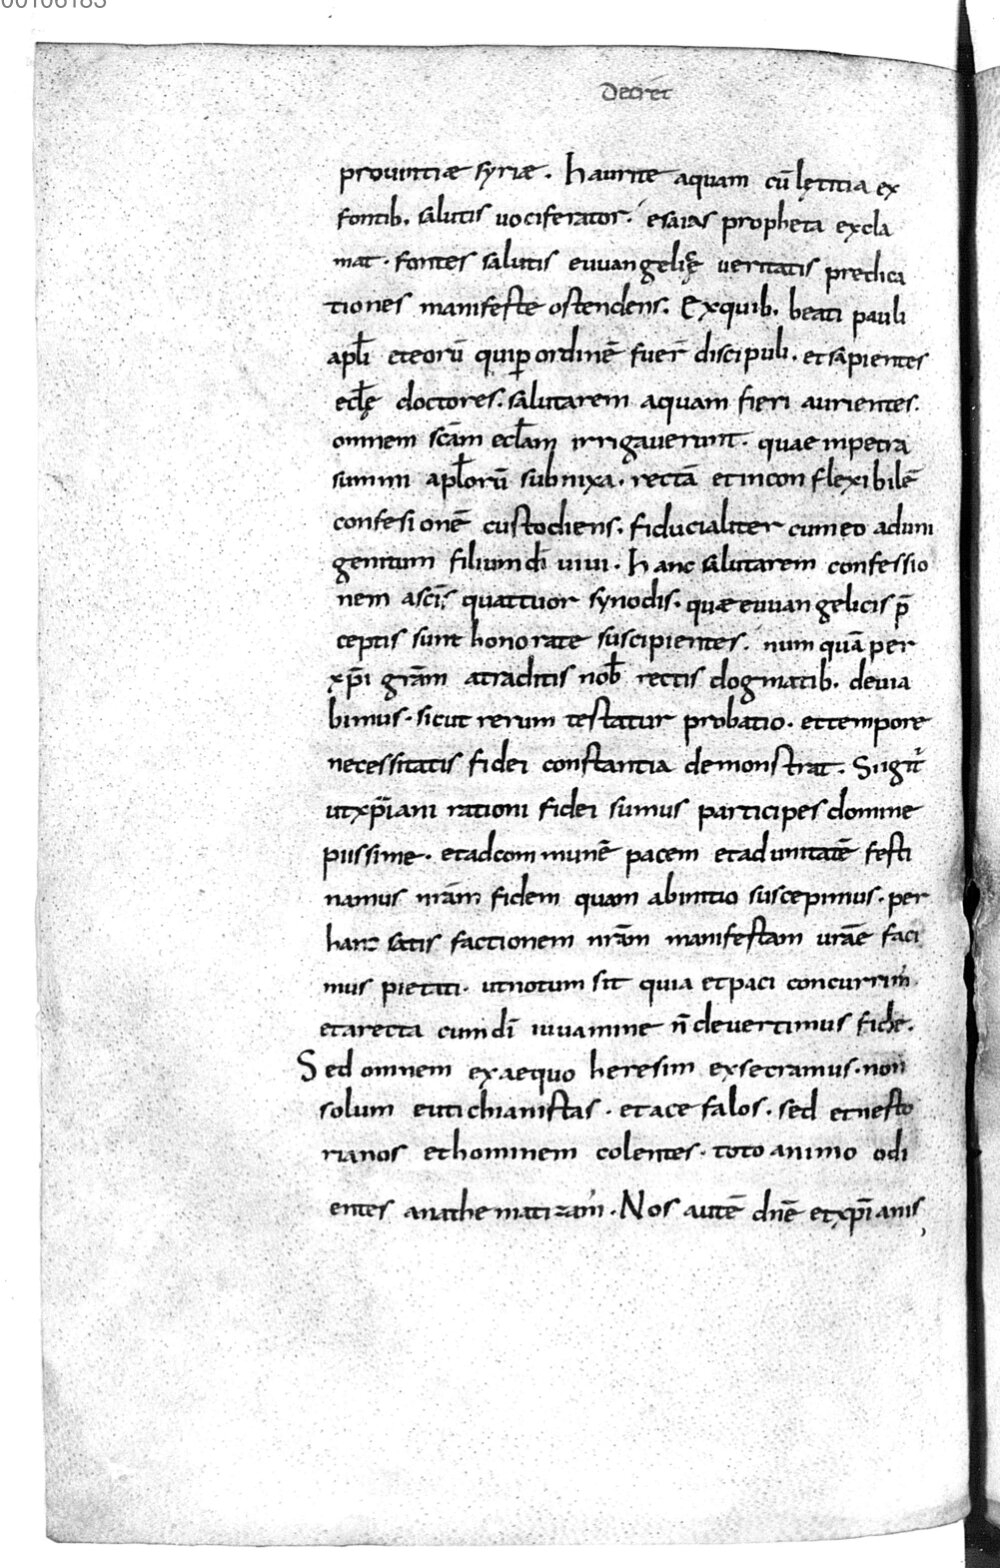 00106183
Decret
prouintiæ syriæ. haurite aquam cū lętitia ex
fontib. salutis uociferator. esaias propheta excla
mat. fontes salutis euuangelię ueritatis predica
tiones manifeste ostendens. Exquib. beati pauli
apłi eteorū quiꝑ ordinē fuer̄ discipuli. et sapientes
ecłę doctores. salutarem aquam fieri aurientes.
omnem scām ecłam irrigauerunt. quae inpetra
summi apłorū subnixa. rectā et inconflexibilē
confesionē custodiens. fiducialiter cum eo aduni
genitum filium dī uiui. hanc salutarem confessio
nem ascīs quattuor synodis. quæ euuangelicis p̄
ceptis sunt honorate suscipientes. numquā per
xp̄i grām atraditis nob̄ rectis dogmatib. deuia
bimus. sicut rerum testatur probatio. ettempore
necessitatis fidei constantia demonstrat. Siigit̄
utxp̄iani rationi fidei sumus participes domine
piissime. etadcommunē pacem etadunitatē festi
namus nrām fidem quam abinitio suscepimus. per
hanc satis factionem nrām manifestam urāe faci
mus pietati. utnotum sit quia etpaci concurrim̄.
etarecta cum dī iuuamine n̄ deuertimus fide.
Sed omnem exaequo heresim exsecramus. non
solum eutichianistas. et acefalos. sed etnesto
rianos ethominem colentes. toto animo odi
entes anathematizam̄. Nos autē dn̄e etxp̄ianis